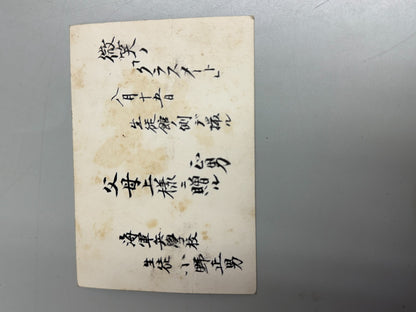 微笑ノ「クラスメート」
八月十五日
生徒館ノ側デ撮ル
正男
父母上様ニ贈ル
海軍兵學校
生徒 小野正男